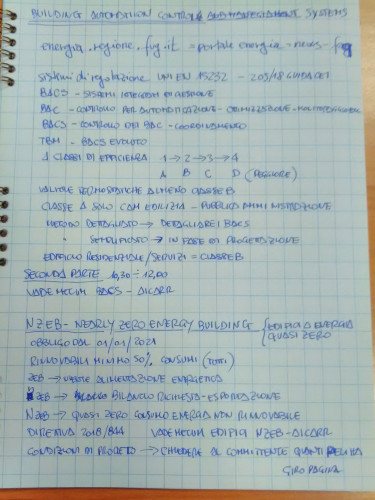 BUILDING AUTOMATION CONTROL AND MANAGEMENT SYSTEMS
energia.regione.fvg.it = portale energia - news - fvg
sistemi di regolazione UNI EN 15232 - 2018 GUIDA CEI
BACS - SISTEMI INTEGRATI DI GESTIONE
BAC - CONTROLLO PER AUTOMATIZZAZIONE - OTTIMIZZAZIONE -
BACS - CONTROLLO DEI BAC - COORDINAMENTO
TBM - BACS EVOLUTO
4 CLASSI DI EFFICIENZA 1 → 2 → 3 → 4
A B C D (PEGGIORE)
VALVOLE TERMOSTATICHE ALMENO CLASSE B
CLASSE A SOLO CAM EDILIZIA - PUBBLICA AMMINISTRAZIONE
METODO DETTAGLIATO → DETTAGLIARE I BACS
" SEMPLIFICATO → IN FASE DI PROGETTAZIONE
EDIFICIO RESIDENZIALE/SERVIZI = CLASSE B
SECONDA PARTE 10,30 ÷ 12,00
VADEMECUM BACS - AICARR
NZEB - NEARLY ZERO ENERGY BUILDING { EDIFICI A ENERGIA
QUASI ZERO
OBBLIGO DAL 01/01/2021
RINNOVABILI MINIMO 50% CONSUMI (TOTTI)
ZEB → ALIMENTAZIONE ENERGETICA
ZEB → BILANCIO RICHIESTA - ESPORTAZIONE
NZEB → QUASI ZERO CONSUMO ENERGIA NON RINNOVABILE
DIRETTIVA 2018/844 VADEMECUM EDIFICI NZEB - AICARR
CONDIZIONI DI PROGETTO → CHIEDERE AL COMMITTENTE QUANTI
GIRO PAGINA